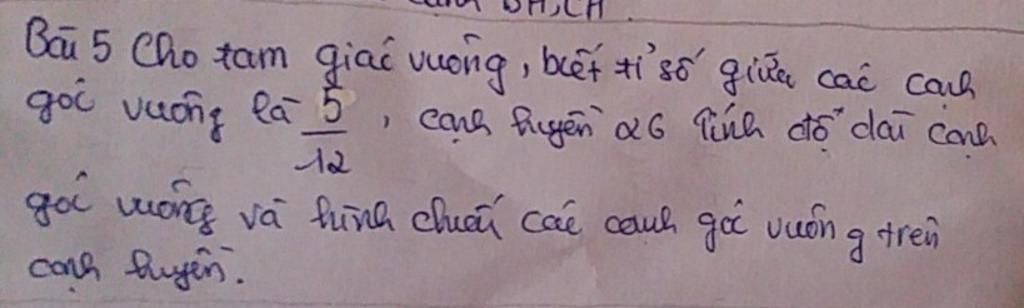 BH, CH.
Bài 5 Cho tam giác vuông, biết tỉ số giữa các cạnh
góc vuông là 5/12, cạnh huyền 26 Tính độ dài cạnh
góc vuông và hình chiếu các cạnh góc vuông trên
cạnh huyền.